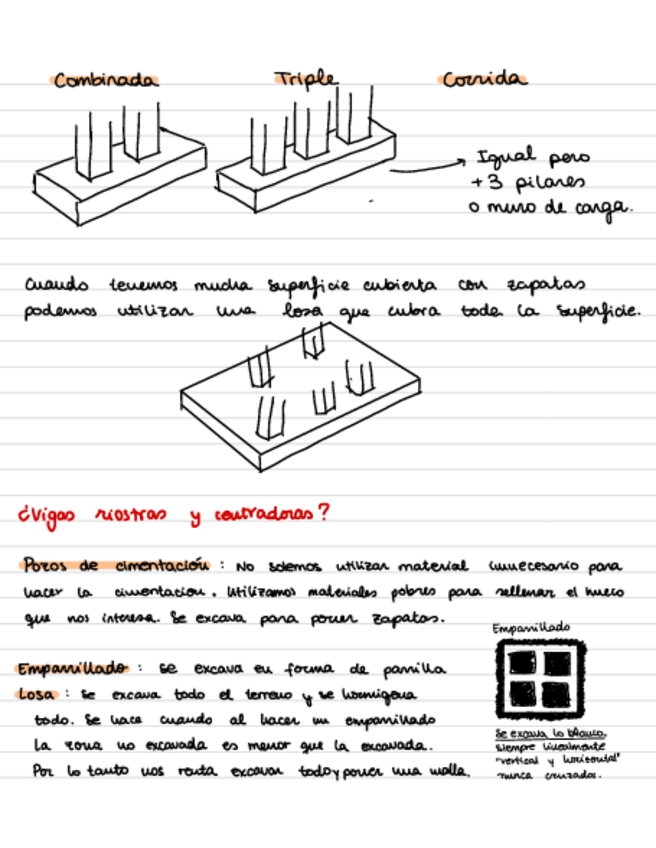 Combinada Triple Corrida
Igual pero
+3 pilares
o muro de carga.
Cuando tenemos mucha superficie cubierta con zapatas
podemos utilizar una losa que cubra toda la superficie.
¿Vigas riostras y centradoras?
Pozos de cimentación : No solemos utilizar material innecesario para
hacer la cimentacion. Utilizamos materiales pobres para rellenar el hueco
que nos interesa. Se excava para poner zapatas.
Emparrillado
Emparrillado : se excava en forma de parrilla
Losa : se excava todo el terreno y se hormigona
todo. Se hace cuando al hacer un emparrillado
la zona no excavada es menor que la excavada.
Por lo tanto nos renta excavar todo y poner una malla.
Se excava lo blanco,
siempre linealmente
"vertical y horizontal"
nunca cruzados.